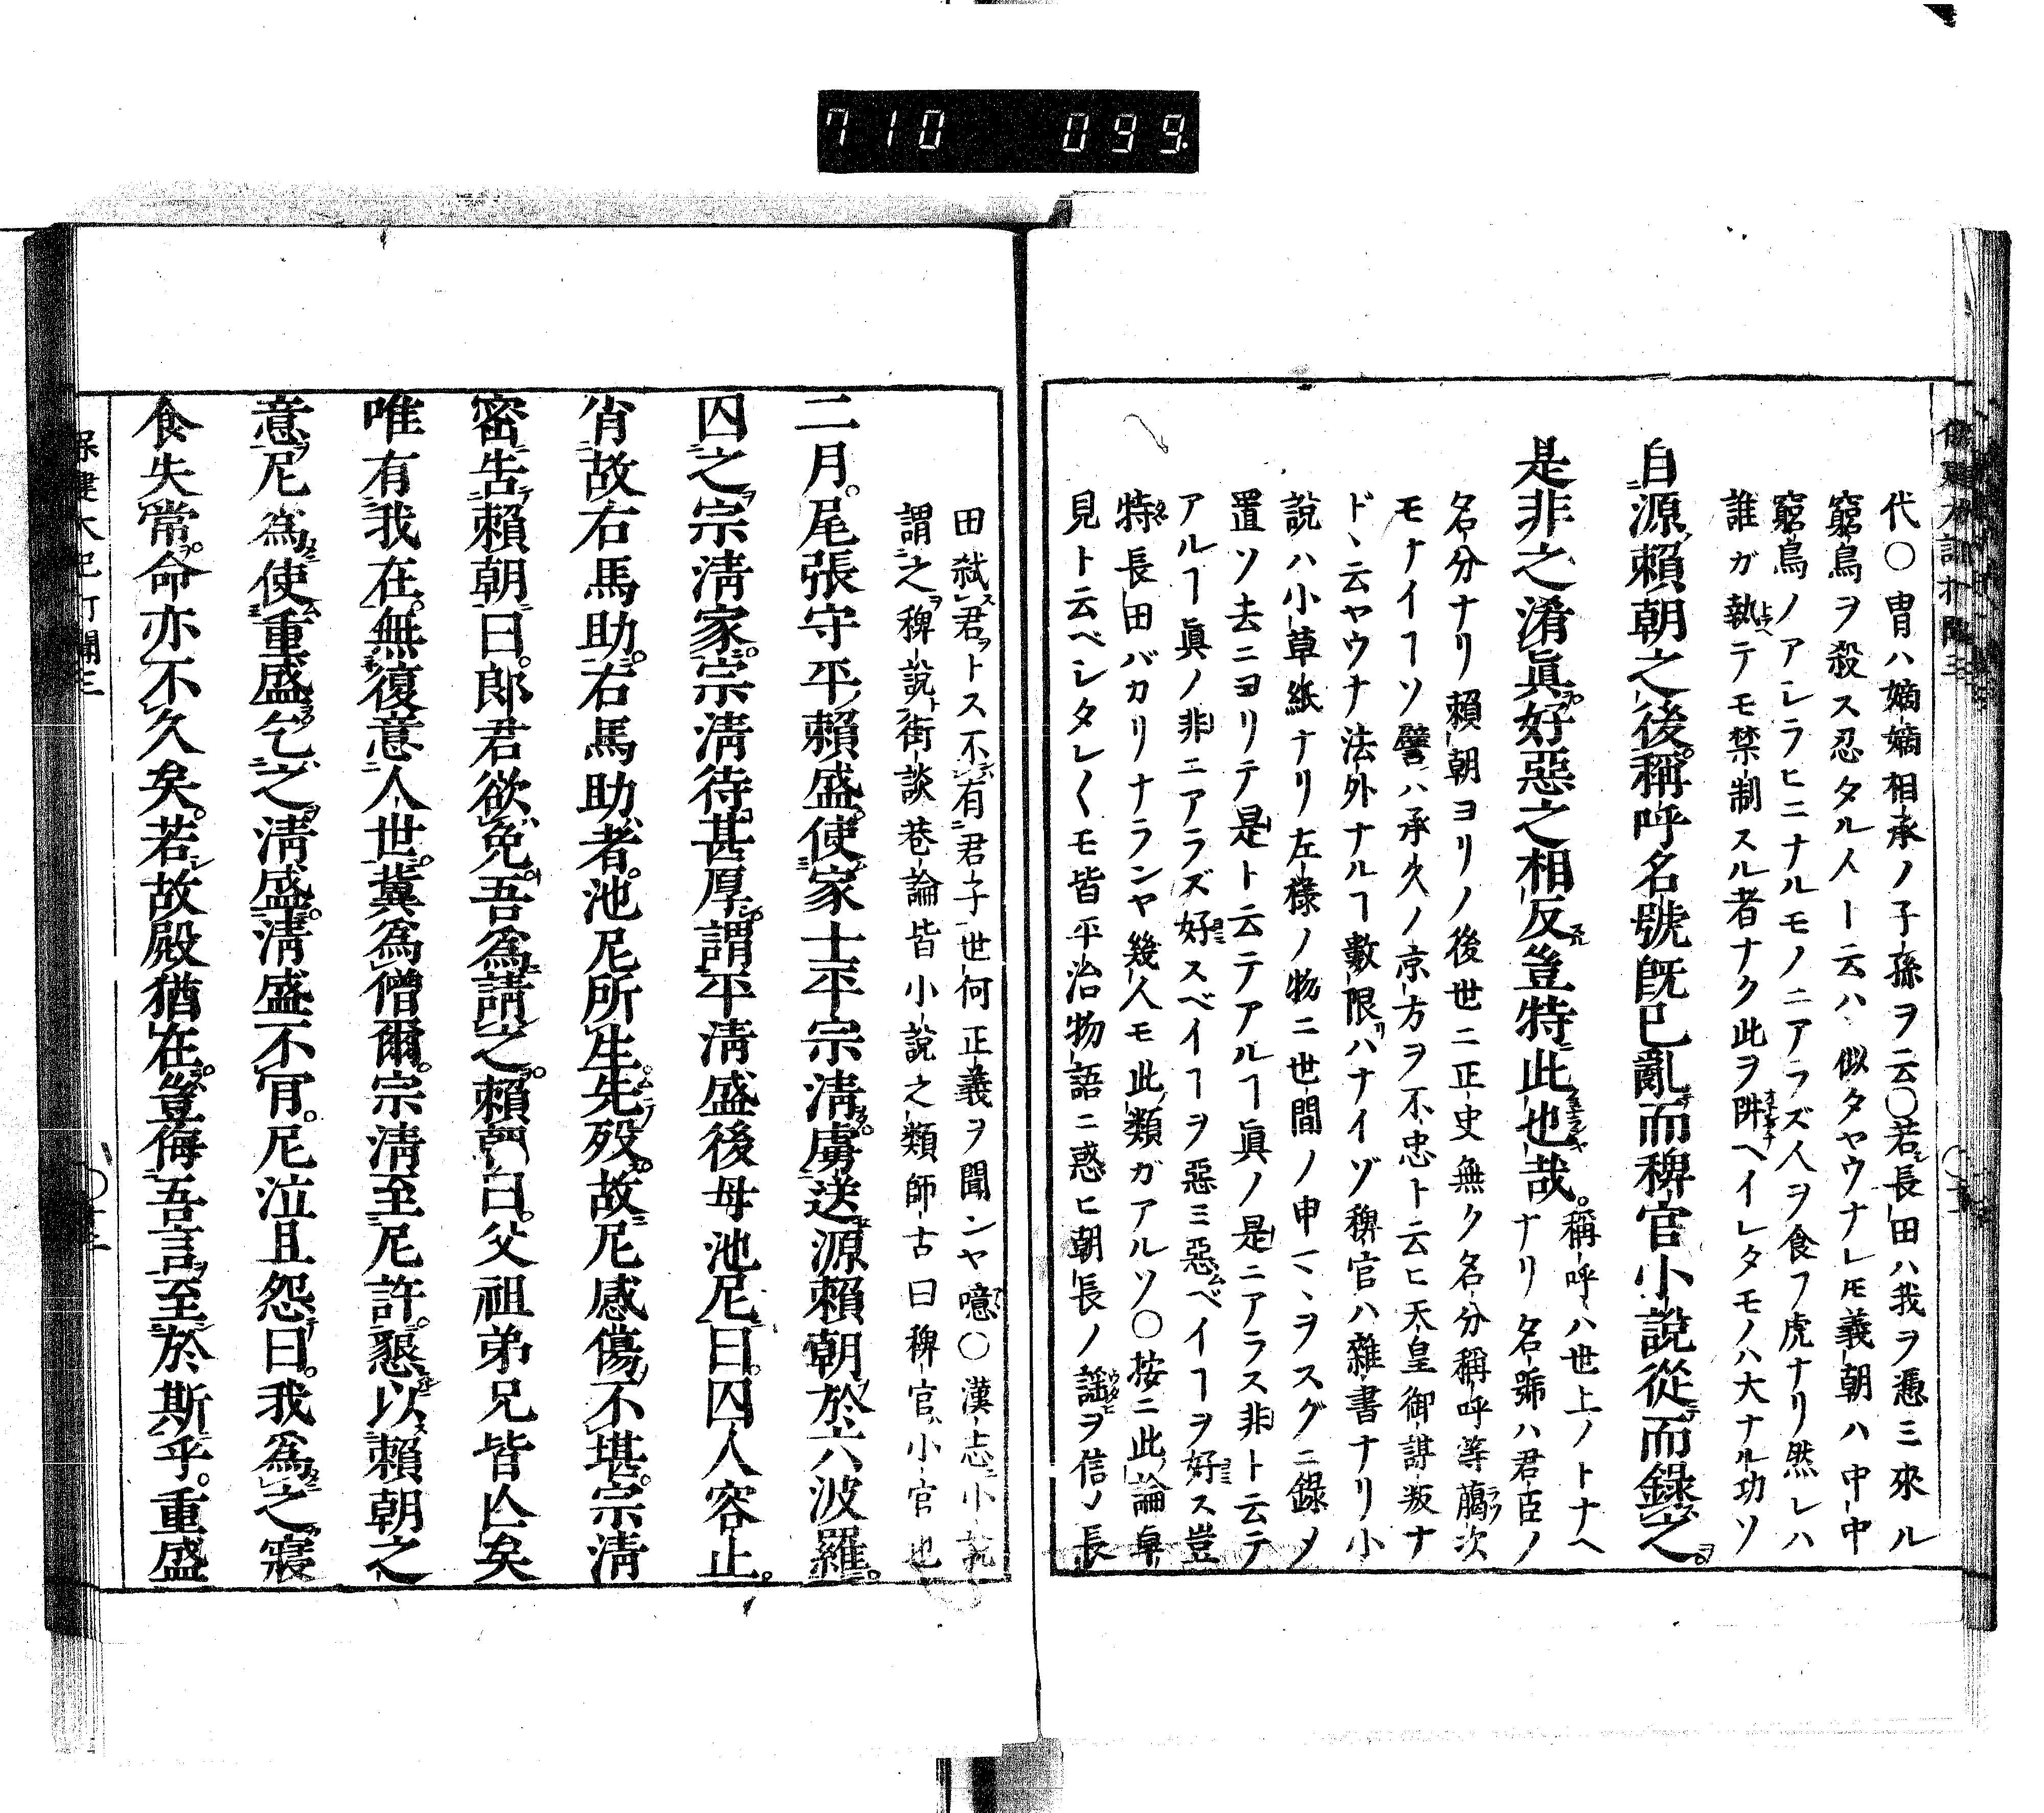 710 099.
代〇冑ハ嫡嫡相承ノ子孫ヲ云〇若長田ハ我ヲ憑ミ來ル
窮鳥ヲ殺ス忍タル人ト云ハ似タヤウナレ𪜈義朝ハ中中
窮鳥ノアシラヒニナルモノニアラズ人ヲ食フ虎ナリ然レハ
誰ガ執テモ禁制スル者ナク此ヲ阱ヘイレタモノハ大ナル功ソ
自源賴朝之後稱呼名號旣已亂而稗官小說從而錄之
是非之淆眞好惡之相反豈特此也哉稱呼ハ世上ノトナヘ
ナリ名號ハ君臣ノ
名分ナリ賴朝ヨリノ後世ニ正史無ク名分稱呼等﨟次
モナイヿソ譬ハ承久ノ京方ヲ不忠ト云ヒ天皇御謀叛ナ
ドヽ云ヤウナ法外ナルヿ數限ハナイゾ稗官ハ雜書ナリ小
說ハ小草紙ナリ左樣ノ物ニ世間ノ申マヽヲスグニ錄メ
置ソ去ニヨリテ是ト云テアルヿ眞ノ是ニアラス非ト云テ
アルヿ眞ノ非ニアラズ好スベイヿヲ惡ミ惡ベイヿヲ好ス豈
特長田バカリナランヤ幾人モ此類ガアルソ〇按ニ此論卓
見ト云ベシタレ〱モ皆平治物語ニ惑ヒ朝長ノ謠ヲ信ノ長
田弑君トス不有君子世何正義ヲ聞ンヤ噫〇漢志小說
謂之稗說街談巷論皆小說之類師古曰稗官小官也
二月尾張守平賴盛使家士平宗淸虜送源賴朝於六波羅
囚之宗淸家宗淸待甚厚謂平淸盛後母池尼曰囚人容止
肖故右馬助右馬助者池尼所生先歿故尼感傷不堪宗淸
密告賴朝曰郎君欲免吾爲請之賴朝曰父祖弟兄皆亾矣
唯有我在無復意人世冀爲僧爾宗淸至尼許懇以賴朝之
意尼爲使重盛乞之淸盛淸盛不肎尼泣且怨曰我爲之寢
食失常命亦不久矣若故殿猶在豈侮吾言至於斯乎重盛